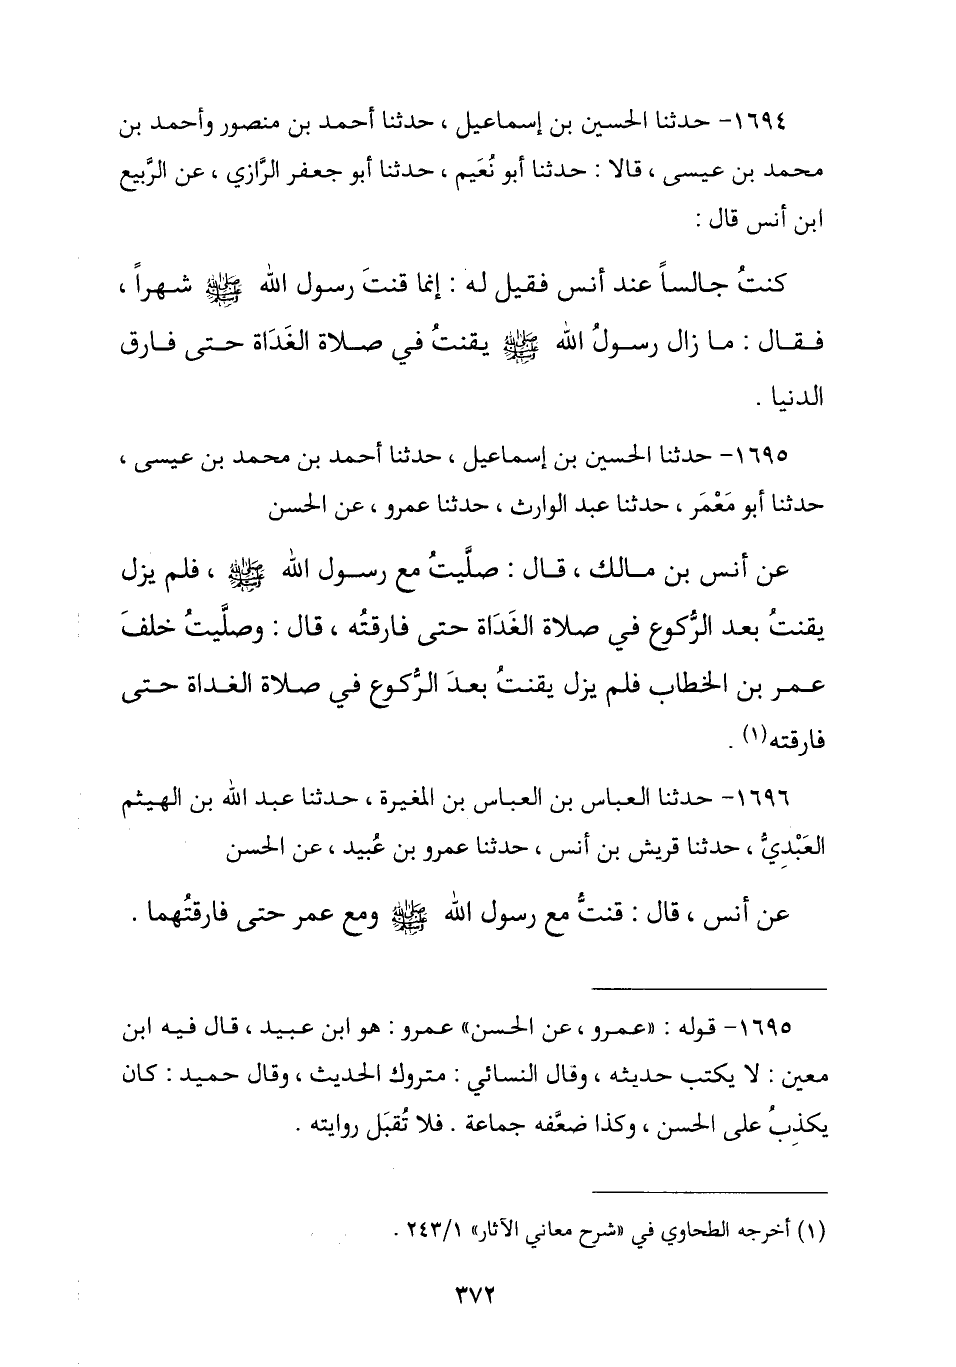 ١٦٩٤- حدثنا الحسين بن إسماعيل ، حدثنا أحمد بن منصور وأحمد بن
محمد بن عيسى ، قالا : حدثنا أبو نُعَيم ، حدثنا أبو جعفر الرَّازي ، عن الرَّبيع
ابن أنس قال :
كنتُ جالساً عند أنس فقيل له : إنما قنتَ رسول الله ﷺ شهراً ،
فقال : ما زال رسولُ الله ﷺ يقنتُ في صلاة الغَدَاة حتى فارق
الدنيا .
١٦٩٥- حدثنا الحسين بن إسماعيل ، حدثنا أحمد بن محمد بن عيسى ،
حدثنا أبو مَعْمَر ، حدثنا عبد الوارث ، حدثنا عمرو ، عن الحسن
عن أنس بن مالك ، قال : صلَّيتُ مع رسول الله ﷺ ، فلم يزل
يقنتُ بعد الرُّكوع في صلاة الغَدَاة حتى فارقتُه ، قال : وصلَّيتُ خلفَ
عمر بن الخطاب فلم يزل يقنتُ بعدَ الرُّكوع في صلاة الغداة حتى
فارقته(١) .
١٦٩٦- حدثنا العباس بن العباس بن المغيرة ، حدثنا عبد الله بن الهيثم
العَبْدِيُّ ، حدثنا قريش بن أنس ، حدثنا عمرو بن عُبيد ، عن الحسن
عن أنس ، قال : قنتُّ مع رسول الله ﷺ ومع عمر حتى فارقتُهما .
١٦٩٥- قوله : «عمرو ، عن الحسن» عمرو : هو ابن عبيد ، قال فيه ابن
معين : لا يكتب حديثه ، وقال النسائي : متروك الحديث ، وقال حميد : كان
يكذِبُ على الحسن ، وكذا ضعَّفه جماعة . فلا تُقبَل روايته .
(١) أخرجه الطحاوي في «شرح معاني الآثار» ٢٤٣/١ .
٣٧٢